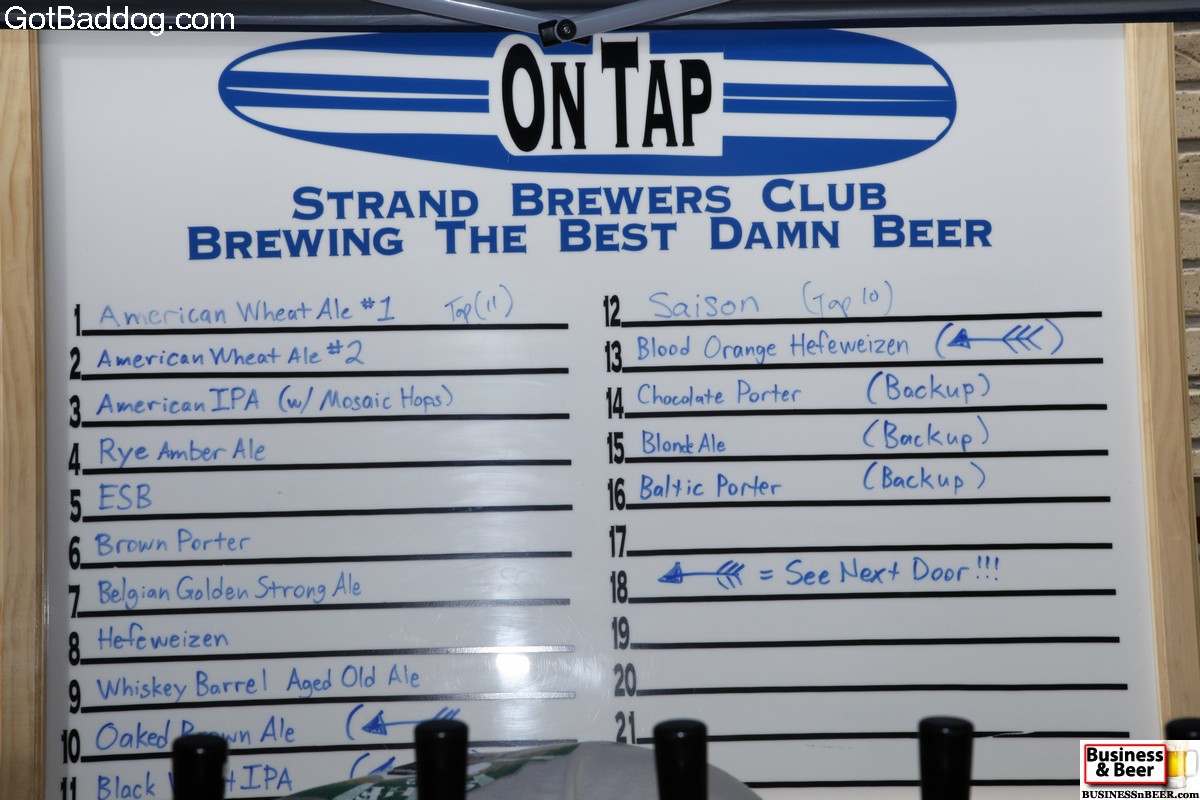 GotBaddog.com
ON TAP
STRAND BREWERS CLUB
BREWING THE BEST DAMN BEER
1 American Wheat Ale #1 Tap (11)
2 American Wheat Ale #2
3 American IPA (w/ Mosaic Hops)
4 Rye Amber Ale
5 ESB
6 Brown Porter
7 Belgian Golden Strong Ale
8 Hefeweizen
9 Whiskey Barrel Aged Old Ale
10 Oaked Brown Ale (
11 Black IPA (
12 Saison (Tap 10)
13 Blood Orange Hefeweizen ( )
14 Chocolate Porter (Backup)
15 Blonde Ale (Backup)
16 Baltic Porter (Backup)
17
18 = See Next Door!!!
19
20
21
Business
& Beer
BUSINESSnBEER.com